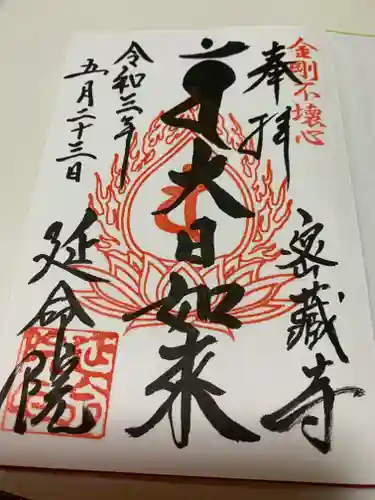 金剛不壊心
奉拝
密蔵寺
大日如来
令和三年
五月二十三日
延命院